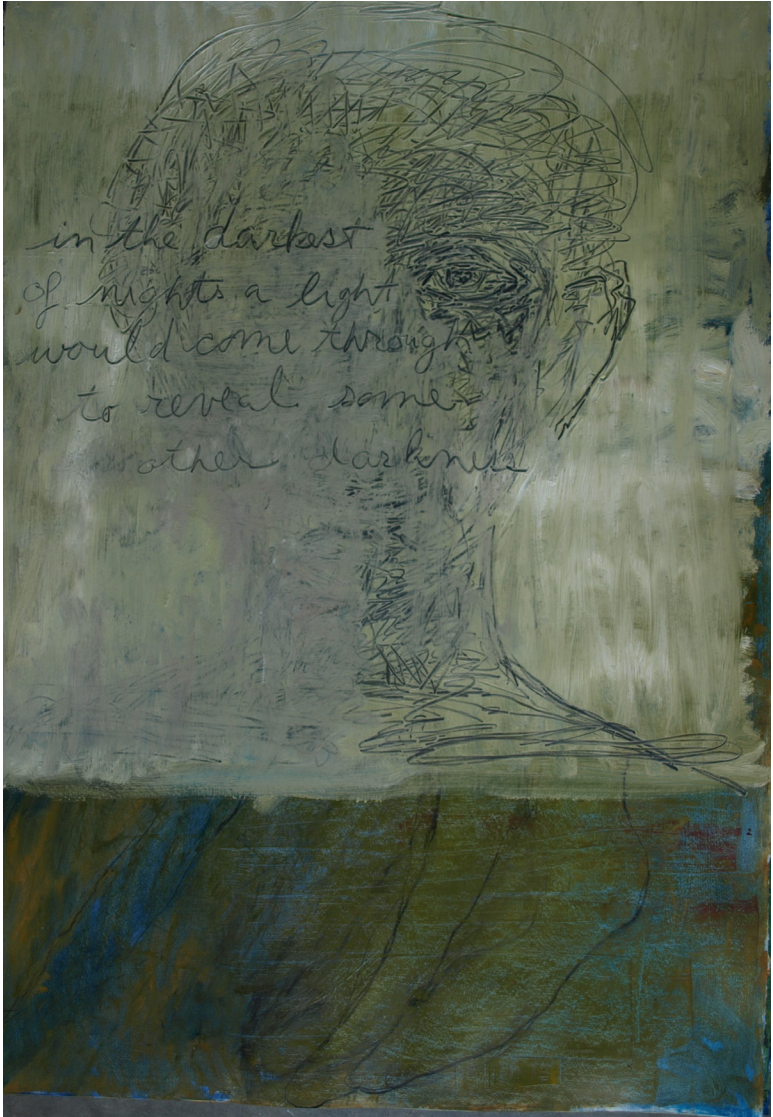 in the darkest
of nights a light
would come through
to reveal some
other darkness